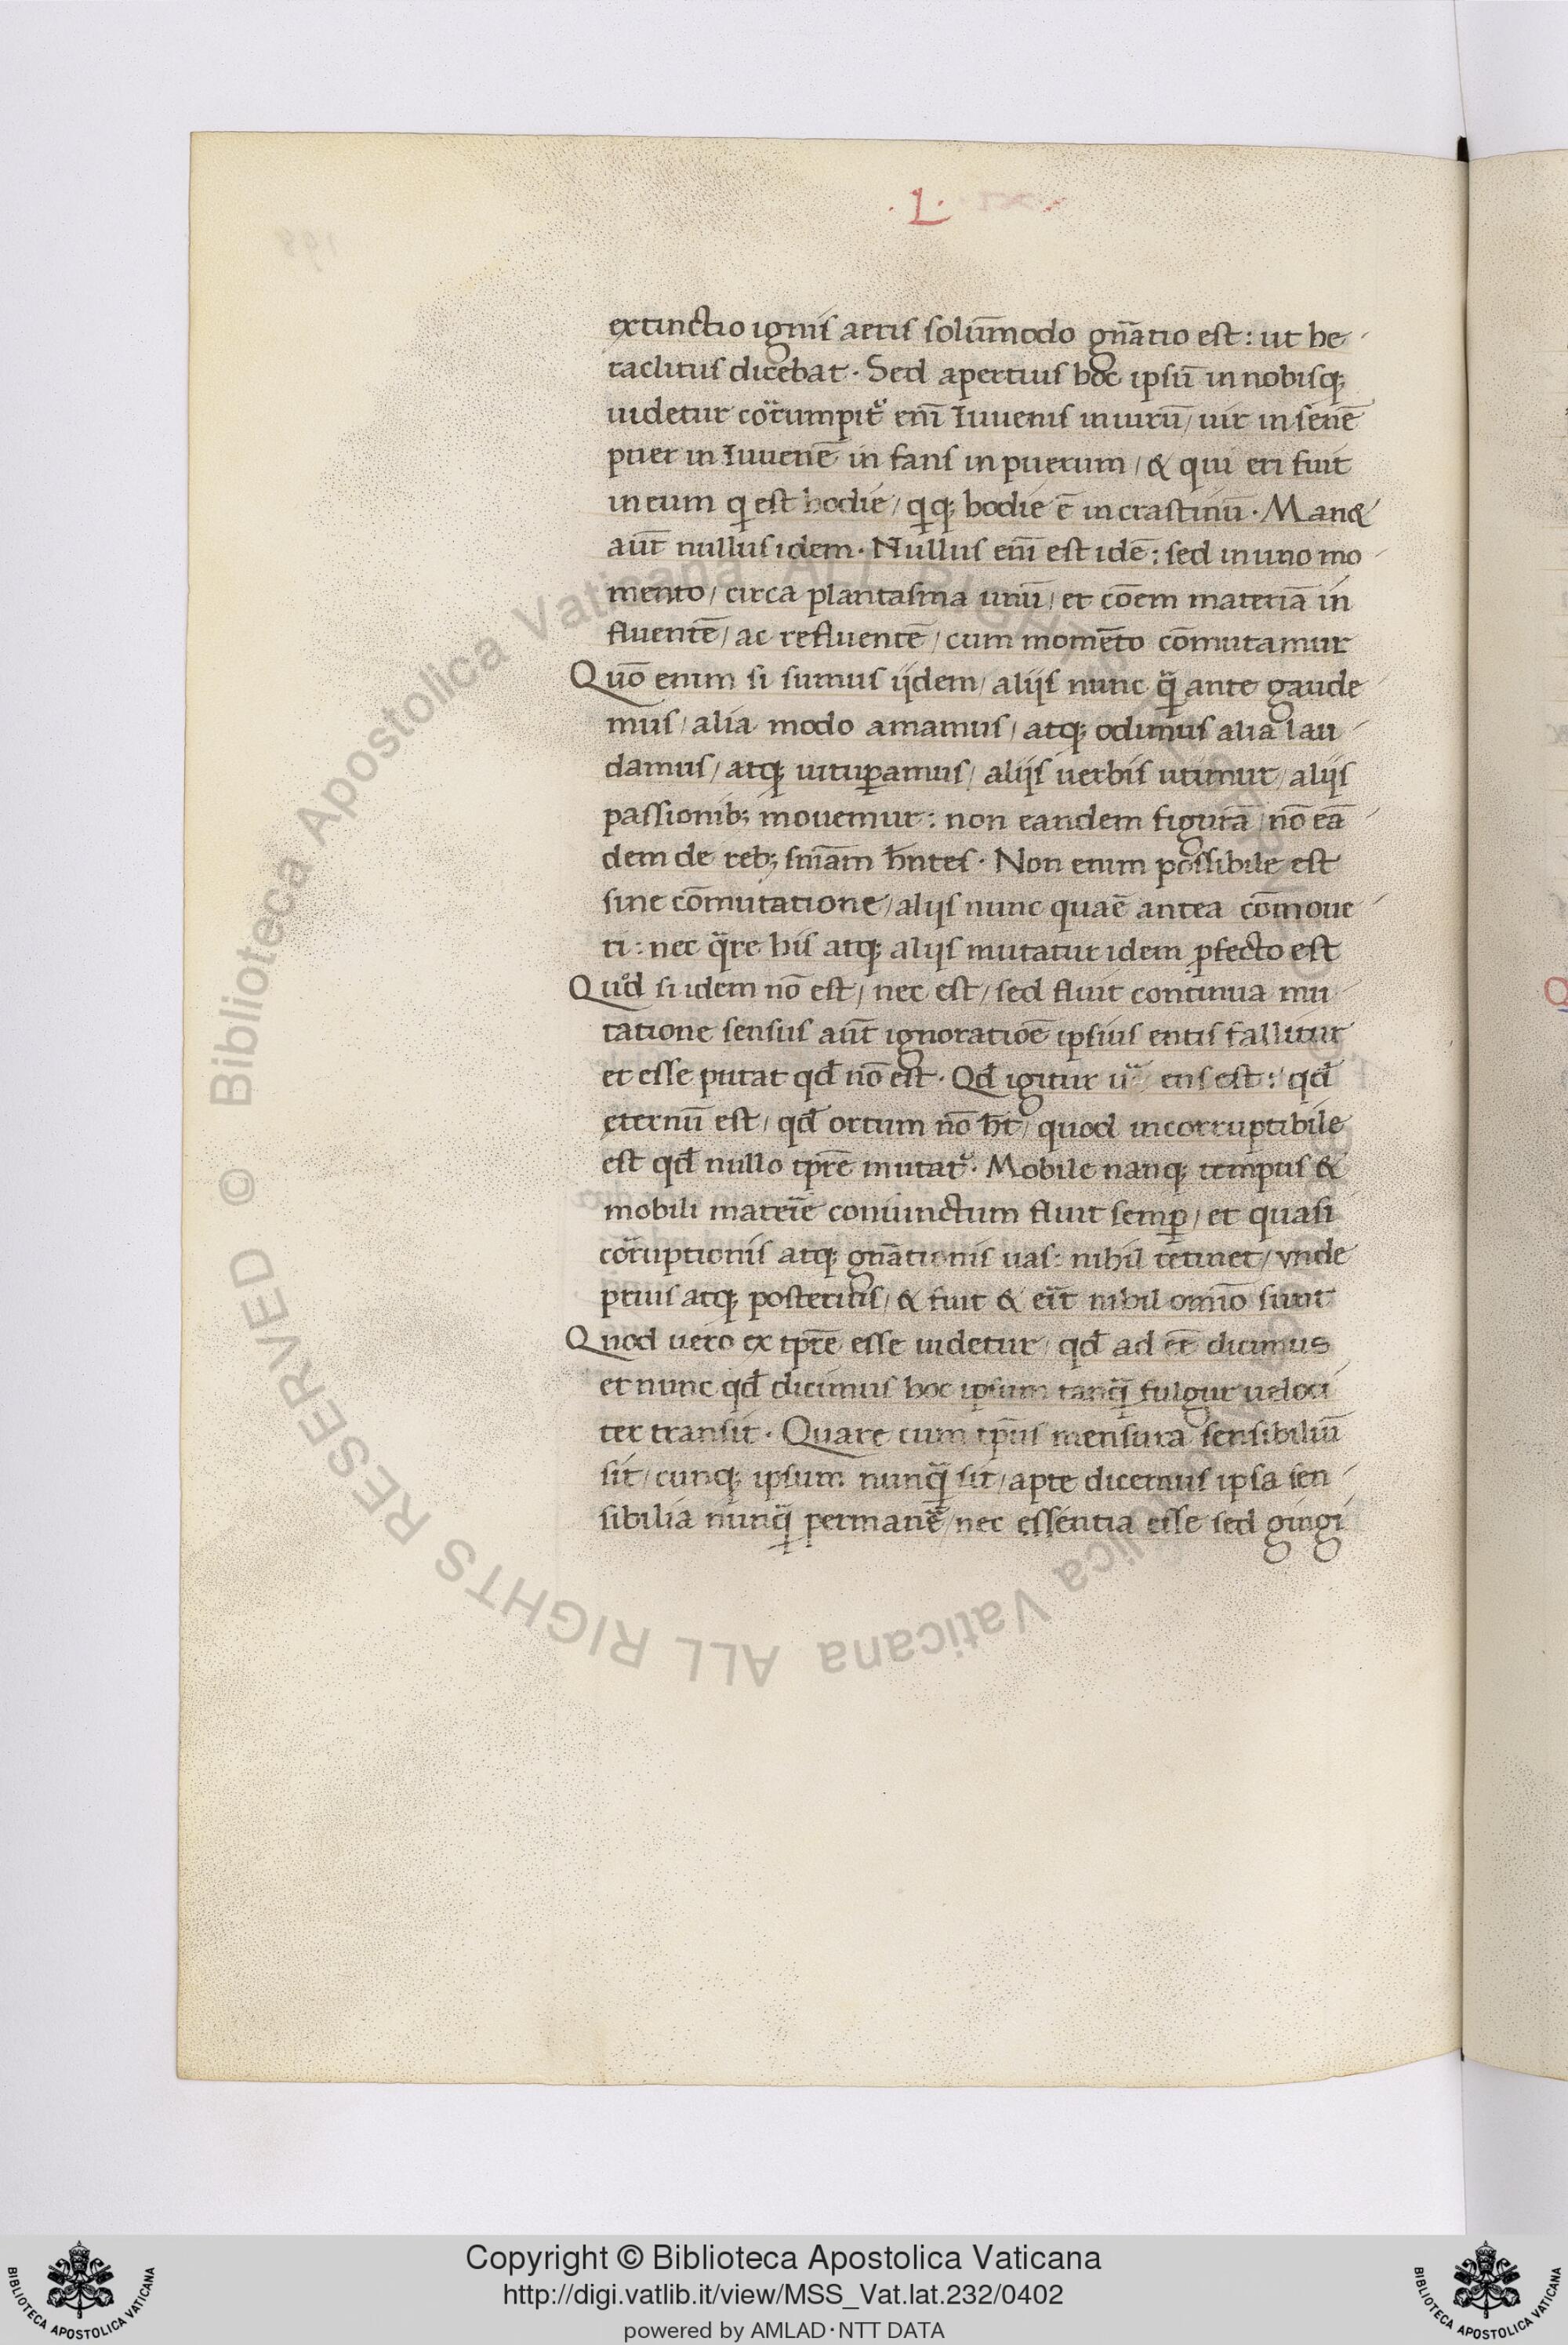 ·L·
extinctio ignis aeris solūmodo gñatio est: ut he
raclitus dicebat· Sed apertius hoc ipsū in nobisq;
uidetur corrumpit᷑ enī Iuuenis in uirū/ uir in senē
puer in Iuuenē in fans in puerum/ & qui eri fuit
in eum qi est hodie/ qiq; hodie ē in crastinū· Man&
aūt nullus idem· Nullus enī est idē: sed in uno mo
mento/ circa plantasma unū/ et cōem materiā in
fluentē/ ac refluentē/ cum momēto cōmutamur
Quō enim si sumus ijdem/ alijs nunc qᷓ ante gaude
mus/ alia modo amamus/ atq; odimus alia lau
damus/ atq; uituꝑamus/ alijs uerbis utimur/ alijs
passionib; mouemur: non eandem figurā/ nō eā
dem de reb; sniam hñtes· Non enim possibile est
sine cōmutatione/ alijs nunc quaē antea cōmoue
ri: nec qᷓre his atq; alijs mutatur idem ꝓfecto est
Quod si idem nō est/ nec est/ sed fluit continua mu
tatione sensus aūt ignoratiōe ipsius entis fallitur
et esse putat qđ nō est· Qđ igitur uᷓ ens est: qđ
eternū est/ qđ ortum nō ht/ quod incorruptibile
est qđ nullo tpre mutat᷑· Mobile nanq; tempus &
mobili mateīe coniunctum fluit semꝑ/ et quasi
coruptionis atq; gñationis uas: nihil retinet/ vnde
prius atq; posterius/ & fuit & erit nihil omīo sunt
Quod uero ex tpre esse uidetur/ qđ ad eē dicimus
et nunc qđ dicimus hoc ipsum tanqᷓ fulgur ueloci
ter transit· Quare cum tp̄us mensura sensibiliū
sit/ cunq; ipsum nunqᷓ sit/ apte dicemus ipsa sen
sibilia nunqᷓ permanē/ nec essentia esse sed gingi
Copyright © Biblioteca Apostolica Vaticana
http://digi.vatlib.it/view/MSS_Vat.lat.232/0402
powered by AMLAD·NTT DATA
BIBLIOTECA APOSTOLICA VATICANA
BIBLIOTECA APOSTOLICA VATICANA
© Biblioteca Apostolica Vaticana ALL RIGHTS RESERVED